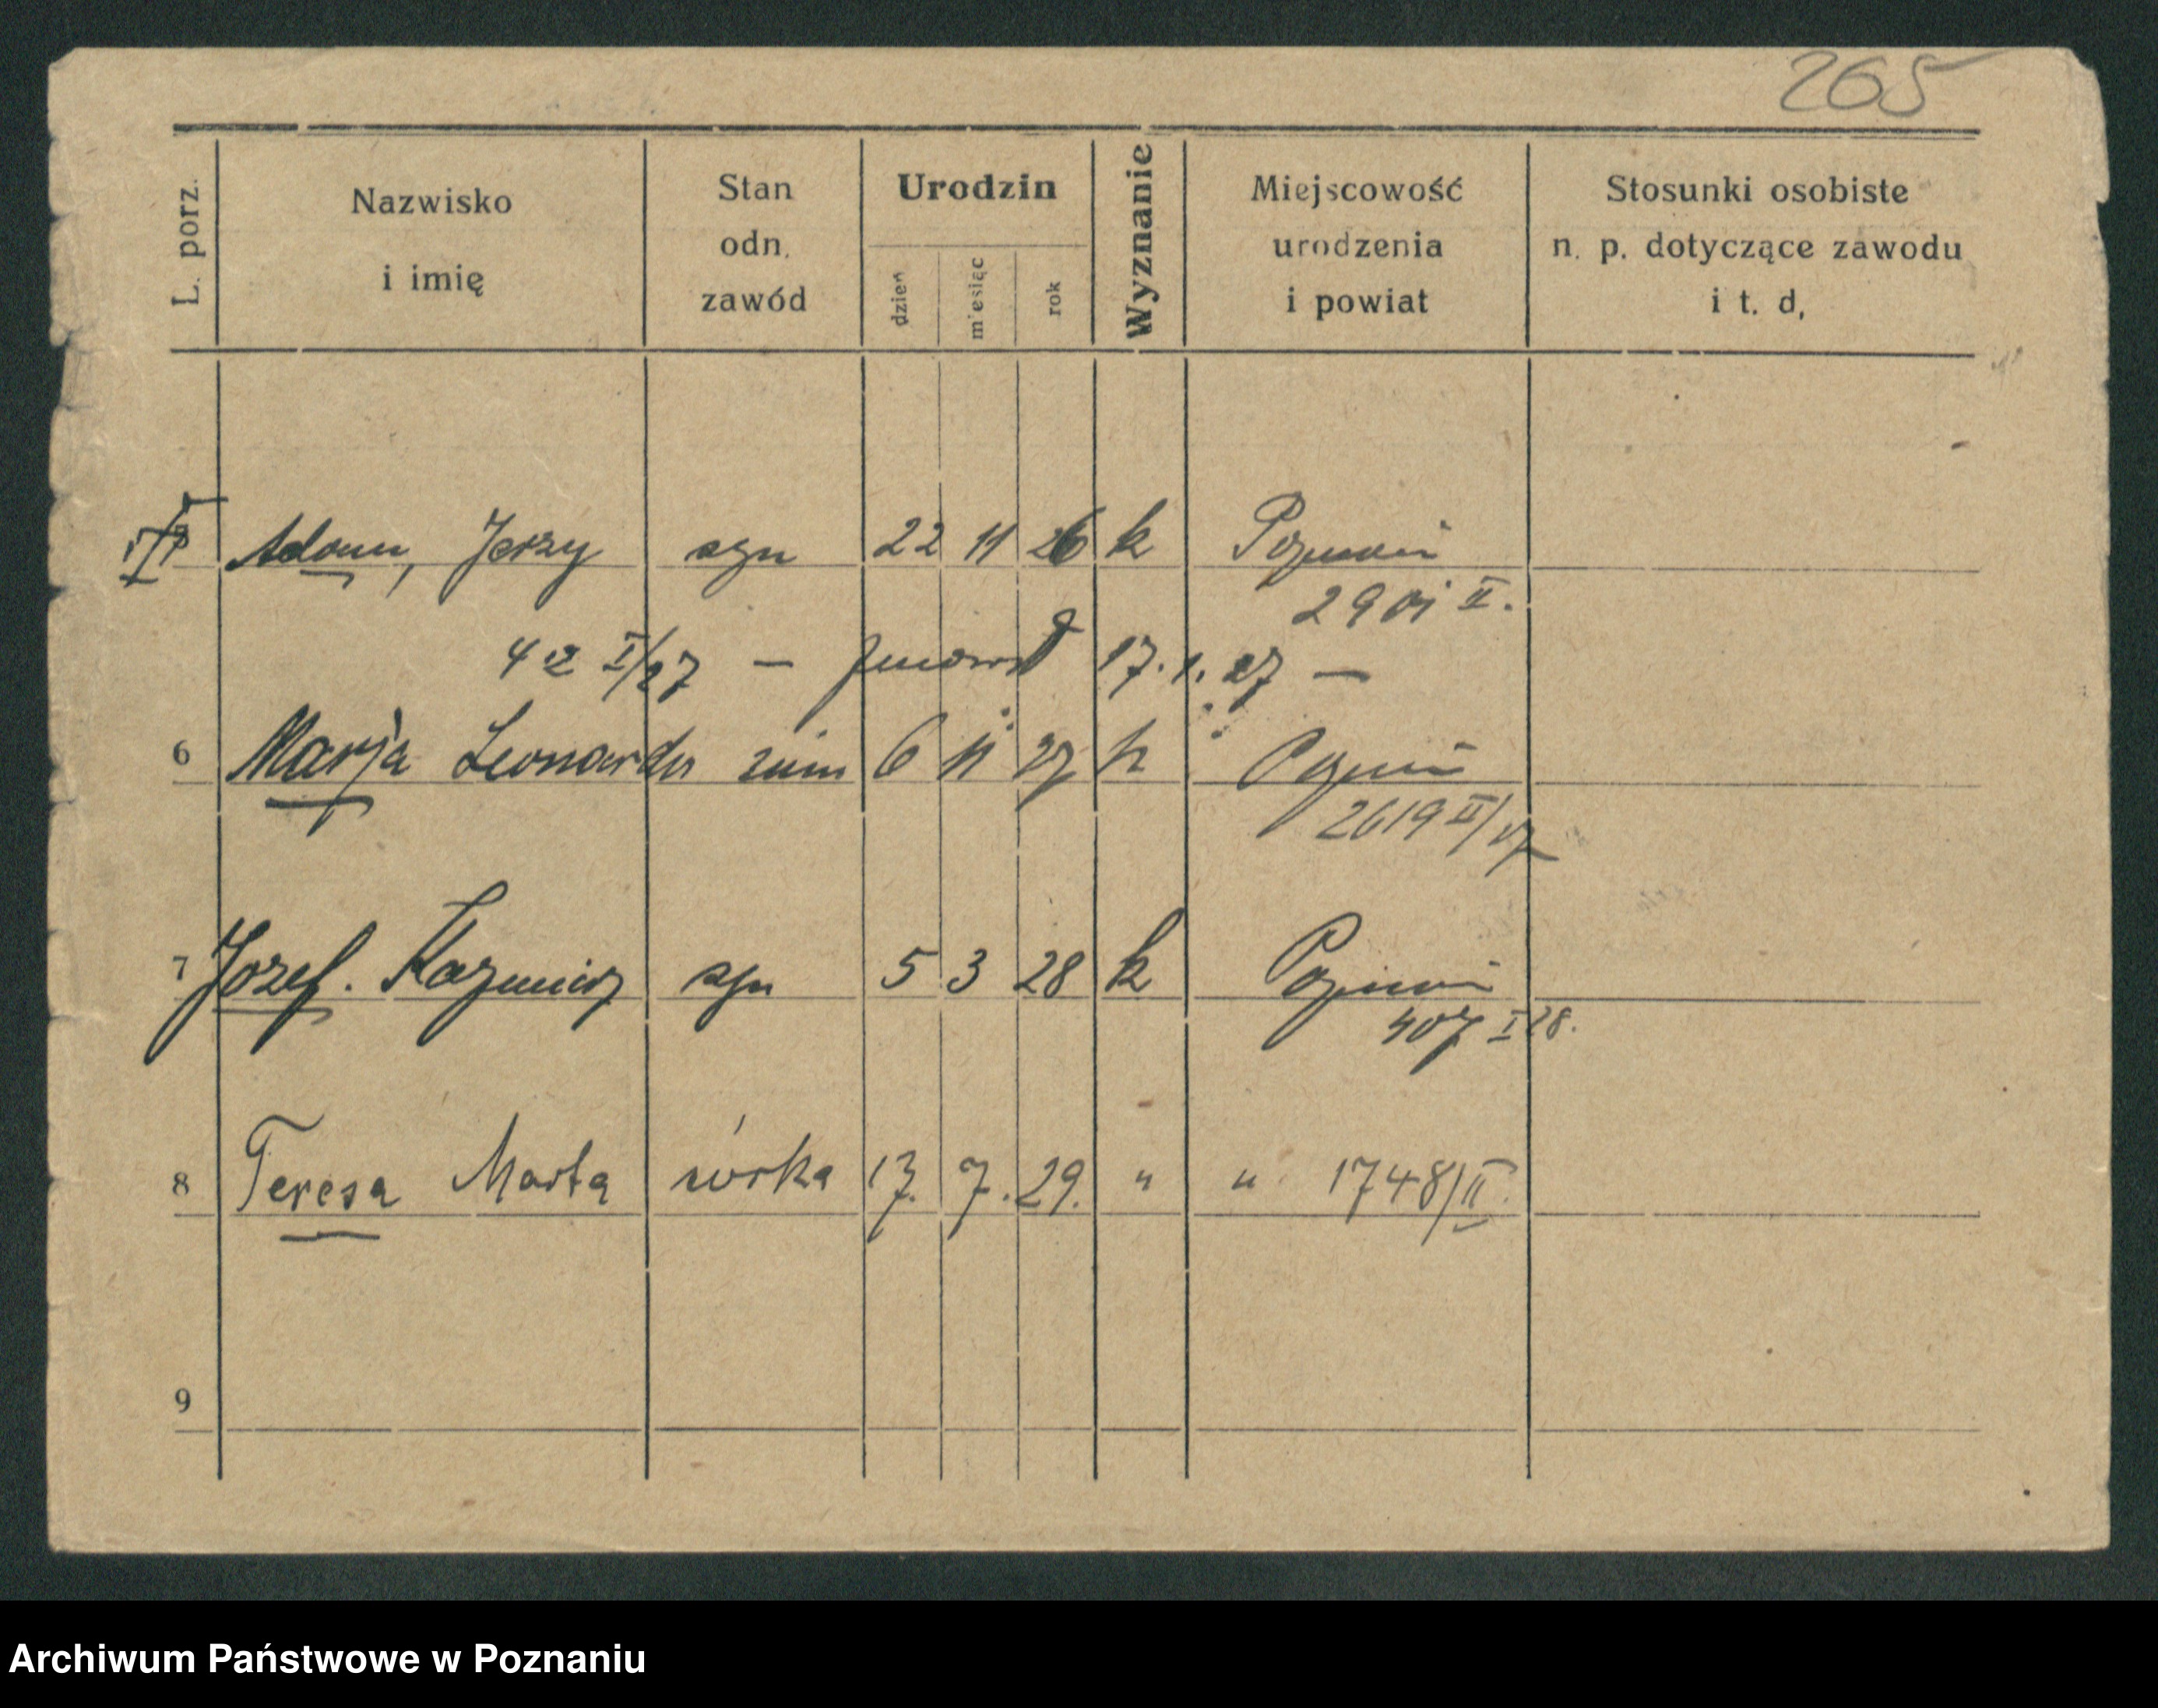 265
L. porz.
Nazwisko
i imię
Stan
odn.
zawód
Urodzin
dzień
miesiąc
rok
Wyznanie
Miejscowość
urodzenia
i powiat
Stosunki osobiste
n. p. dotyczące zawodu
i t. d,
Adam, Jerzy syn 22 11 26 k Poznań
2901 II.
42 I/27 — zmarł 17.1.27 —
6 Marja Leonarda 6 11 27 k Poznań
2619 II/27
7 Józef. Kazimierz syn 5 3 28 k Poznań
407 I 28.
8 Teresa Marta córka 17. 7. 29. " " 1748/II.
9
Archiwum Państwowe w Poznaniu